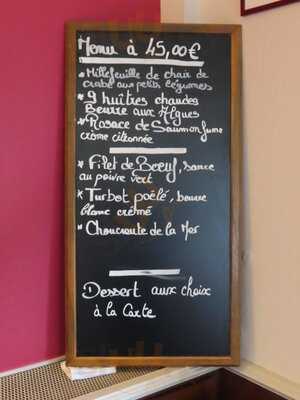 Menu à 45,00€
* Millefeuille de chair de
crabe aux petits légumes
* 9 huîtres chaudes
Beurre aux Algues
* Rosace de Saumon fumé
crème citronnée
* Filet de Boeuf, sauce
au poivre vert
* Turbot poêlé, beurre
blanc crémé
* Choucroute de la Mer
Dessert aux choix
à la Carte